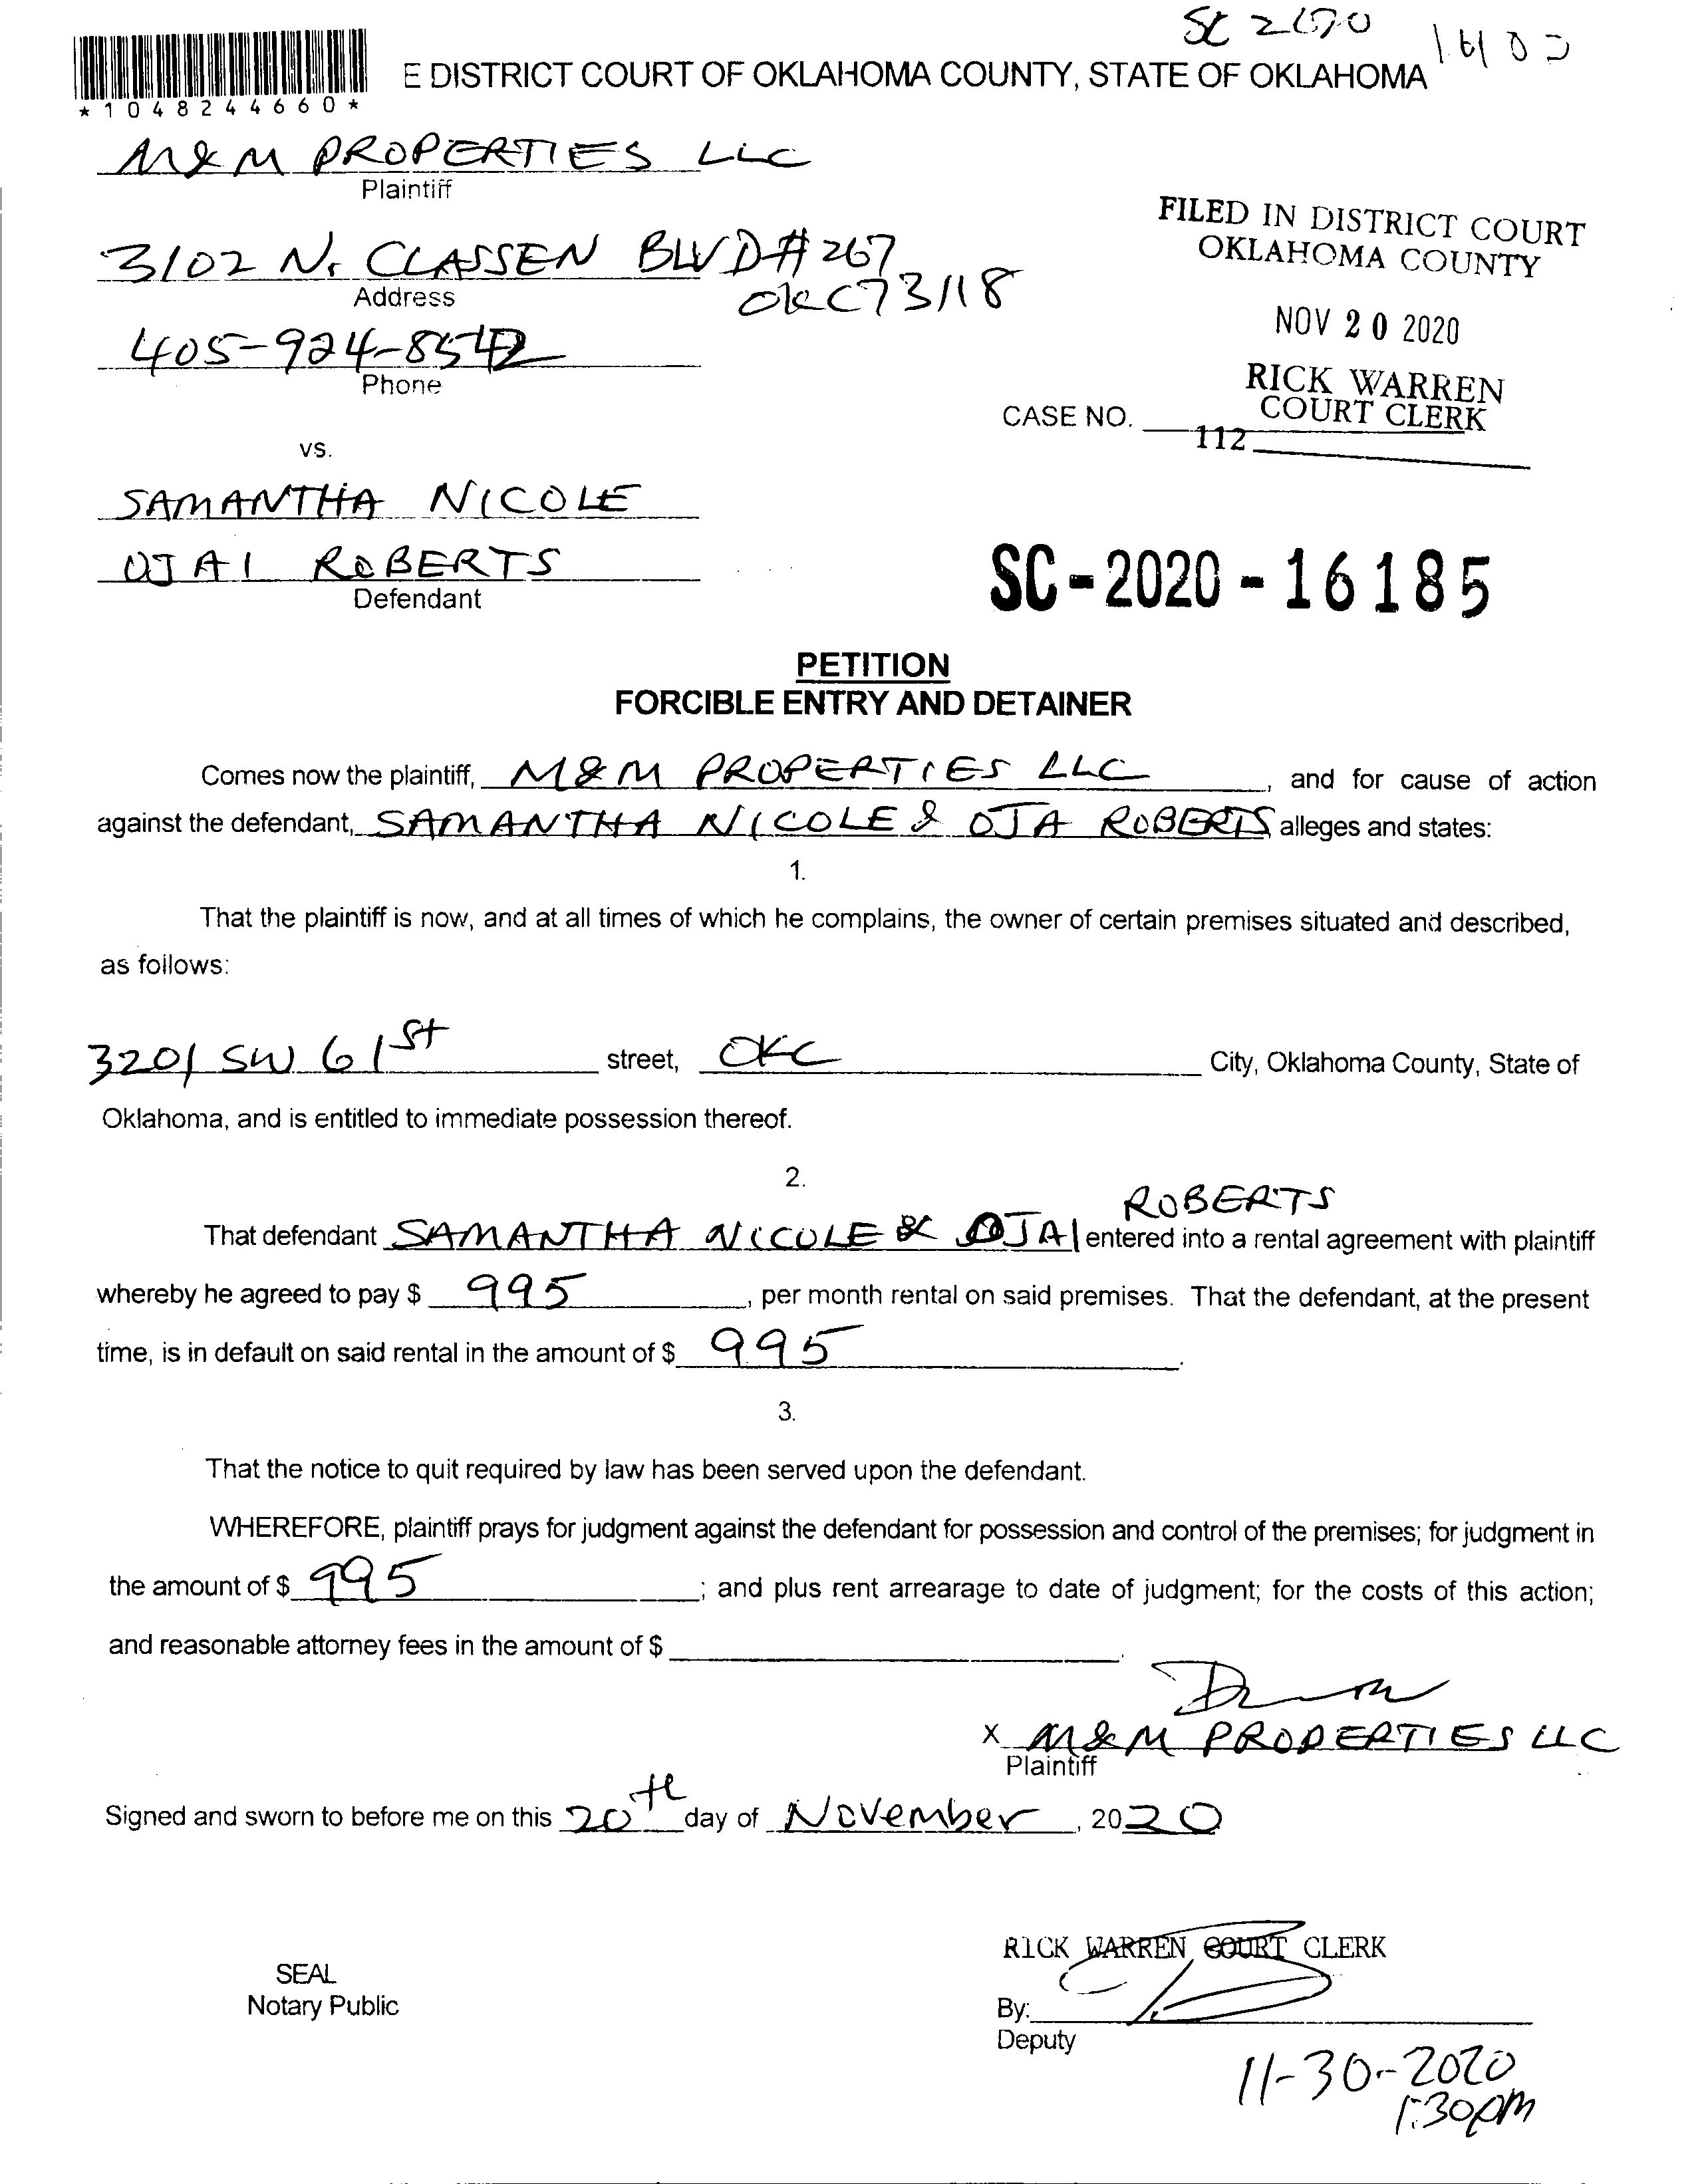 SC 2690
E DISTRICT COURT OF OKLAHOMA COUNTY, STATE OF OKLAHOMA
*1048244660*
M&M PROPERTIES LLC
Plaintiff
FILED IN DISTRICT COURT
OKLAHOMA COUNTY
3102 N. CLASSEN BLVD # 267
Address
OKC 73118
NOV 20 2020
405-924-8542
Phone
RICK WARREN
COURT CLERK
CASE NO.
112
vs.
SAMANTHA NICOLE
OJAI ROBERTS
Defendant
SC-2020-16185
PETITION
FORCIBLE ENTRY AND DETAINER
Comes now the plaintiff, M&M PROPERTIES LLC, and for cause of action
against the defendant, SAMANTHA NICOLE & OJA ROBERTS alleges and states:
1.
That the plaintiff is now, and at all times of which he complains, the owner of certain premises situated and described,
as follows:
3201 SW 61st street, OKC City, Oklahoma County, State of
Oklahoma, and is entitled to immediate possession thereof.
2.
ROBERTS
That defendant SAMANTHA NICOLE & OJAI entered into a rental agreement with plaintiff
whereby he agreed to pay $ 995, per month rental on said premises. That the defendant, at the present
time, is in default on said rental in the amount of $ 995.
3.
That the notice to quit required by law has been served upon the defendant.
WHEREFORE, plaintiff prays for judgment against the defendant for possession and control of the premises; for judgment in
the amount of $ 995; and plus rent arrearage to date of judgment; for the costs of this action;
and reasonable attorney fees in the amount of $ .
X M&M PROPERTIES LLC
Plaintiff
Signed and sworn to before me on this 20th day of November, 2020
RICK WARREN COURT CLERK
SEAL
Notary Public
By:
Deputy
11-30-2020
1:30pm